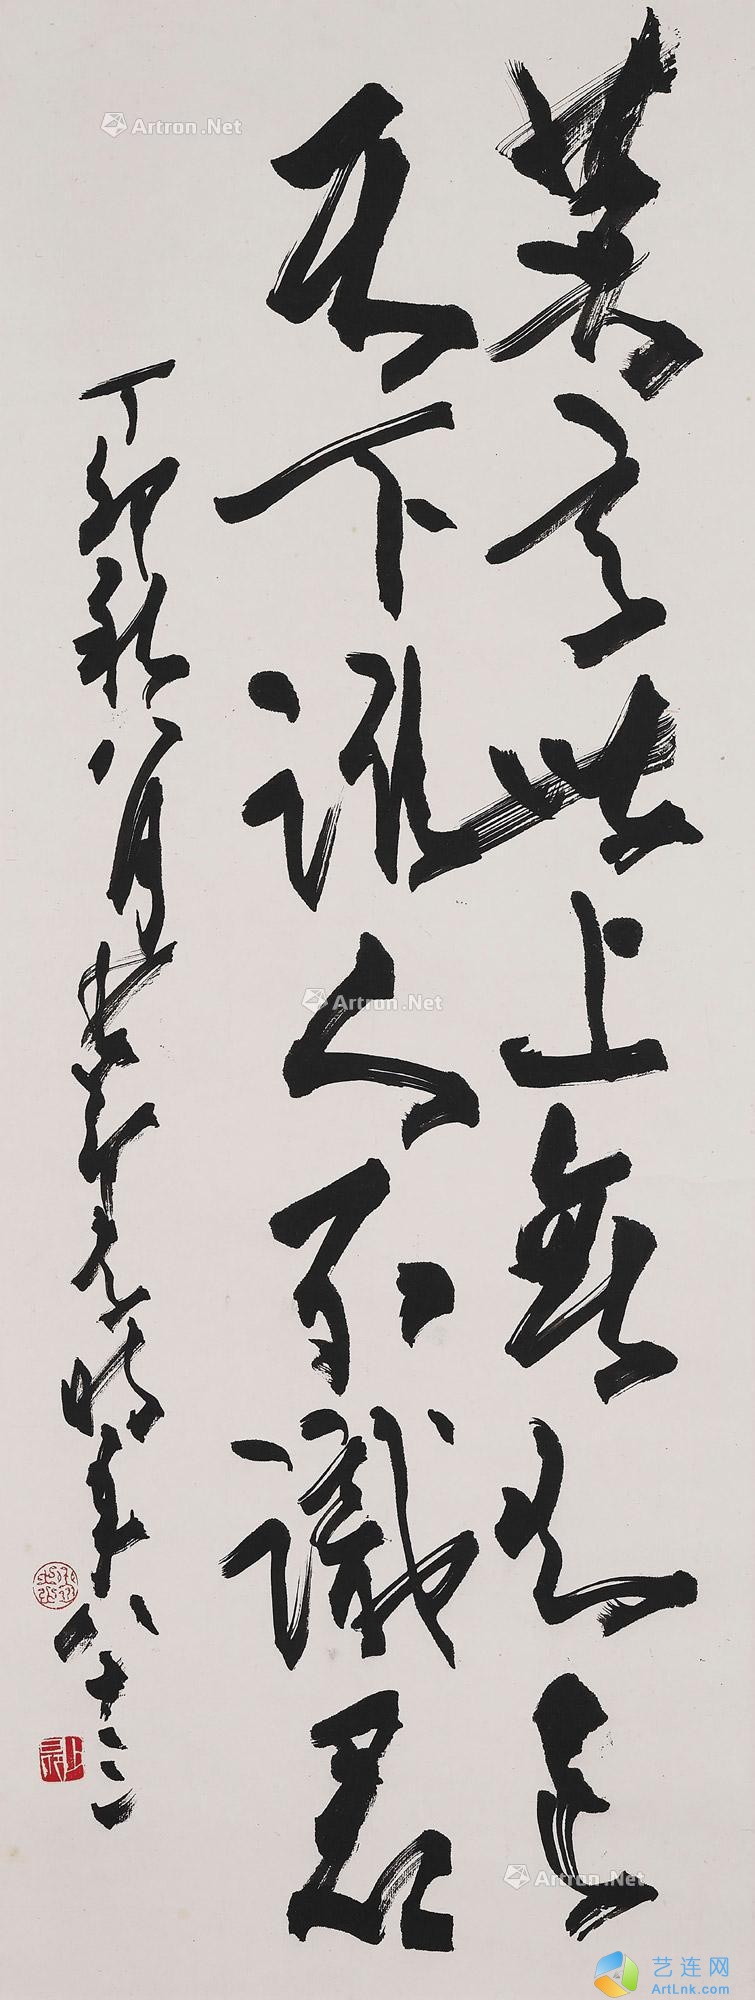 莫言世上無知己
天下誰人不識君
丁卯秋八月時年八十三
Artron.Net
Artron.Net
Artron.Net
艺连网
ArtLnk.com